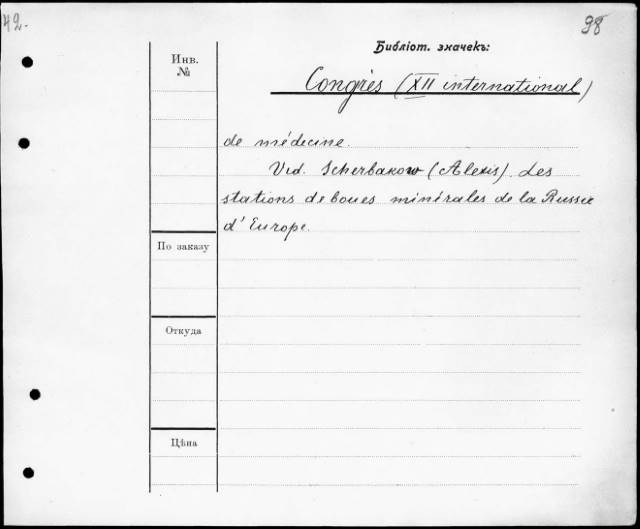 42.
98
Библіот. значекъ:
Инв.
№
Congrès (XII international)
de médecine.
Vid. Scherbakow (Alexis). Les
stations de boues minérales de la Russie
d'Europe.
По заказу
Откуда
Цѣна